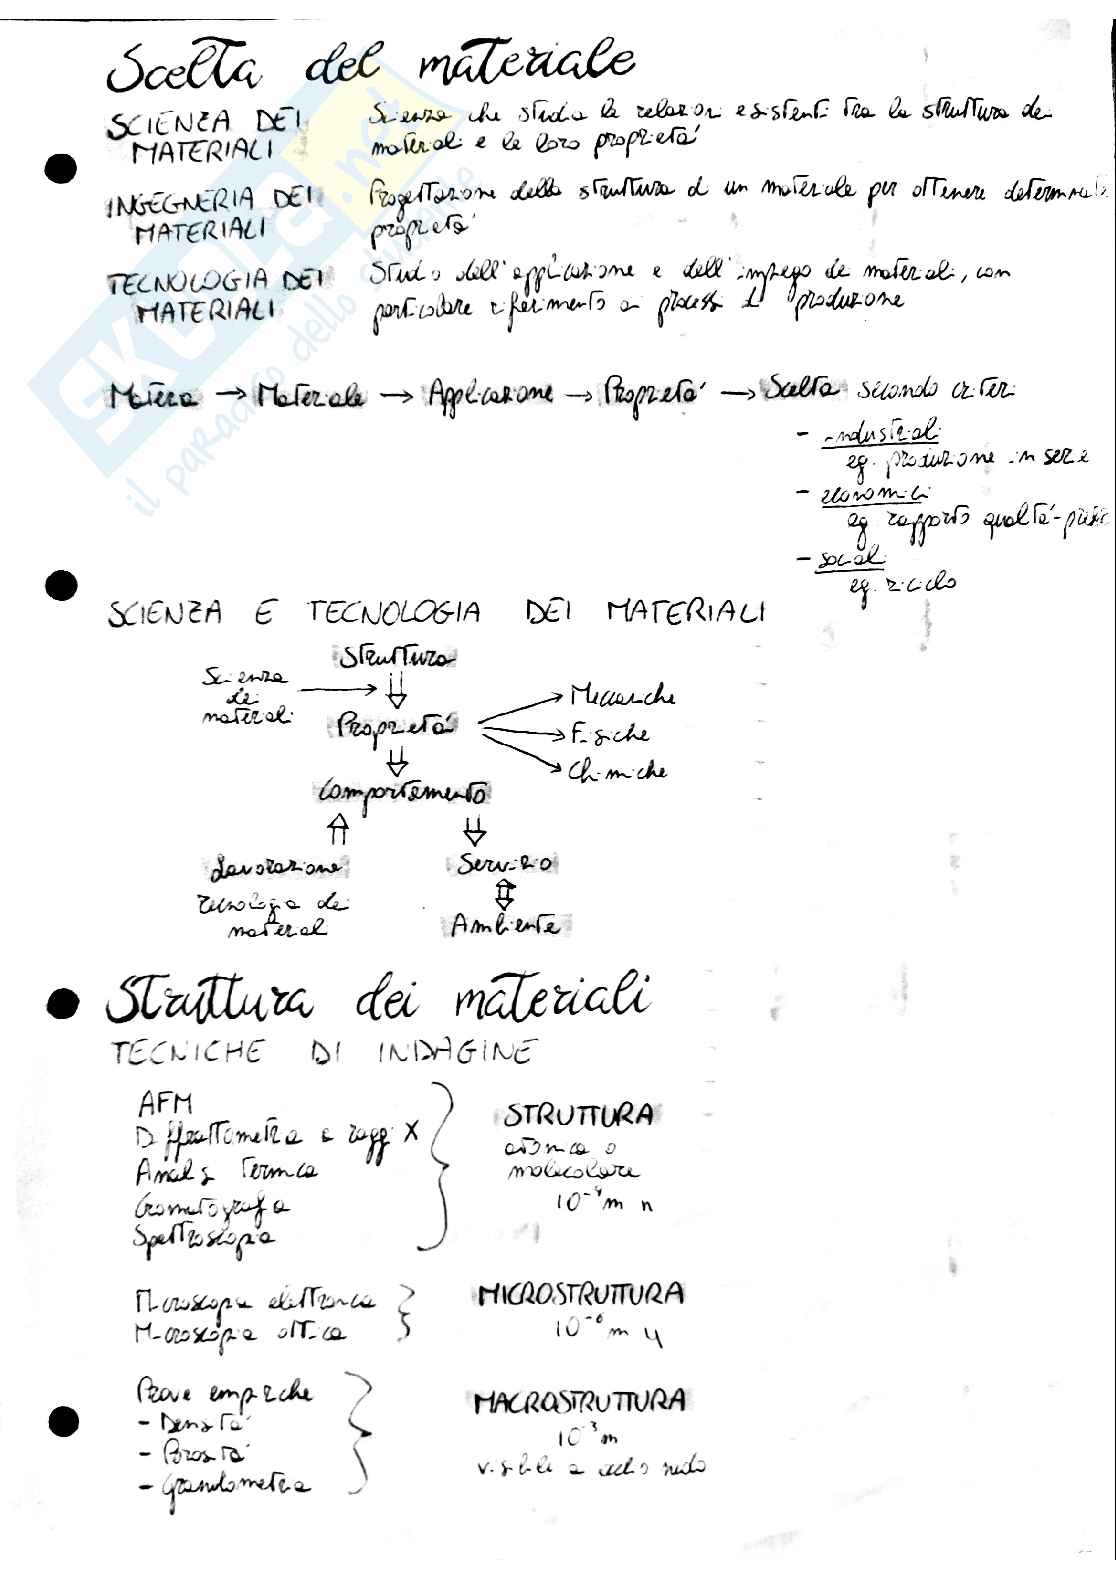 Scelta del materiale
SCIENZA DEI MATERIALI
Scienza che studia le relazioni esistenti tra la struttura dei
materiali e le loro proprietà
INGEGNERIA DEI MATERIALI
Progettazione della struttura di un materiale per ottenere determinate
proprietà
TECNOLOGIA DEI MATERIALI
Studio dell'applicazione e dell'impiego dei materiali, con
particolare riferimento ai processi di produzione
Materia → Materiale → Applicazione → Proprietà → Scelta secondo criteri
- industriali
eg. produzione in serie
- economici
eg. rapporto qualità-prezzo
- sociali
eg. riciclo
SCIENZA E TECNOLOGIA DEI MATERIALI
Struttura
Scienza
dei
materiali
Proprietà
Meccaniche
Fisiche
Chimiche
Comportamento
Lavorazione
Servizio
tecnologia dei
materiali
Ambiente
Struttura dei materiali
TECNICHE DI INDAGINE
AFM
Diffrattometria a raggi X
Analisi termica
Cromatografia
Spettroscopia
STRUTTURA
atomica o
molecolare
10⁻⁹m n
Microscopia elettronica
Microscopia ottica
MICROSTRUTTURA
10⁻⁶m μ
Prove empiriche
- Densità
- Porosità
- Granulometria
MACROSTRUTTURA
10⁻³m
visibile a occhio nudo
SKUOLA.net
il paradiso dello studente